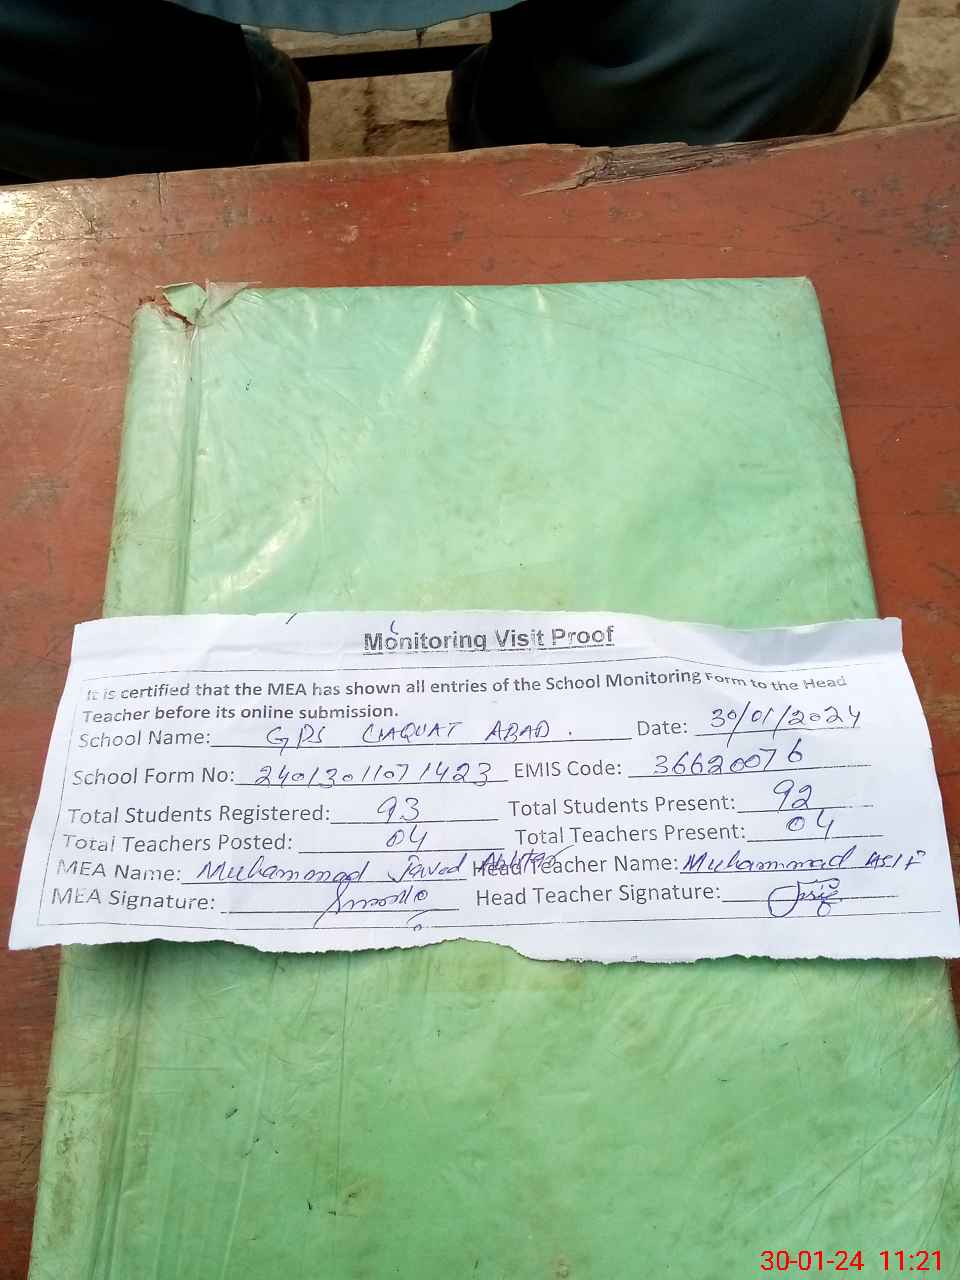 Monitoring Visit Proof
It is certified that the MEA has shown all entries of the School Monitoring Form to the Head
Teacher before its online submission.
School Name: GPS LIAQUAT ABAD. Date: 30/01/2024
School Form No: 24013011071423 EMIS Code: 36620076
Total Students Registered: 93 Total Students Present: 92
Total Teachers Posted: 04 Total Teachers Present: 04
MEA Name: Muhammad Javed Head Teacher Name: Muhammad ASIF
MEA Signature: Head Teacher Signature:
30-01-24 11:21